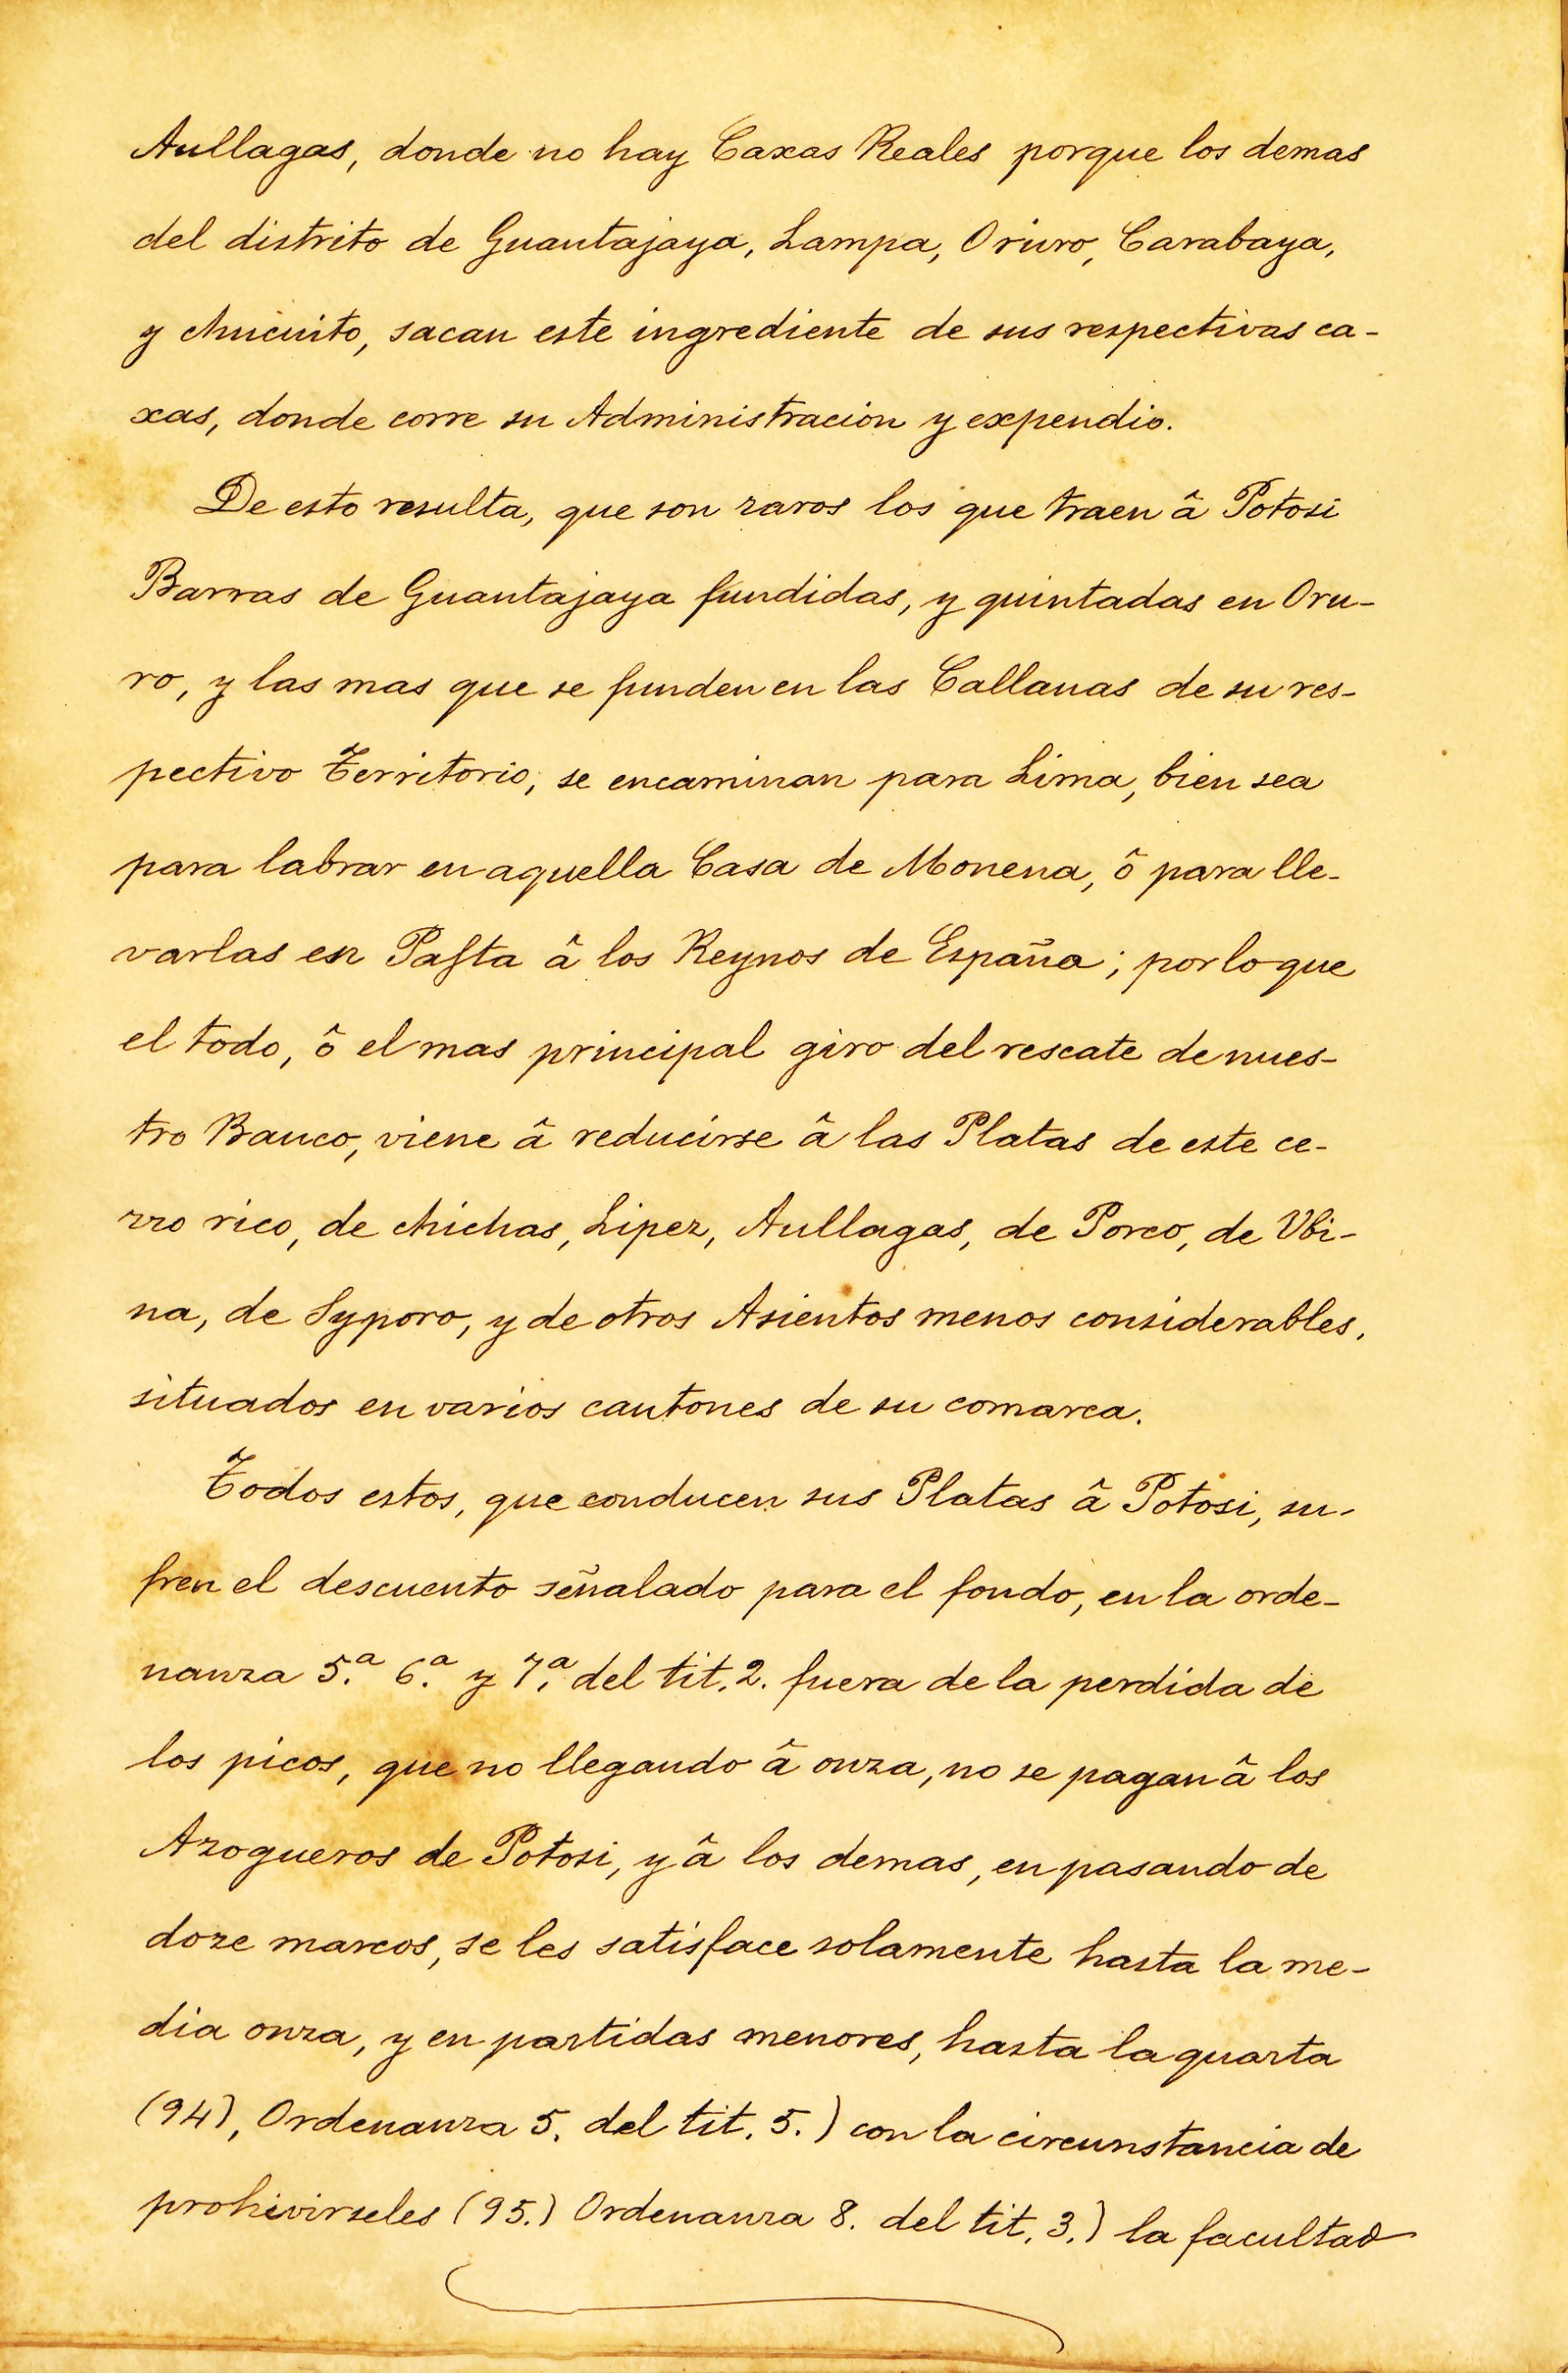 Aullagas, donde no hay Caxas Reales porque los demas
del distrito de Guantajaya, Lampa, Oruro, Carabaya,
y chucuito, sacan este ingrediente de sus respectivas ca-
xas, donde corre su Administracion y expendio.
De esto resulta, que son raros los que traen â Potosi
Barras de Guantajaya fundidas, y quintadas en Oru-
ro, y las mas que se funden en las Callanas de su res-
pectivo Territorio, se encaminan para Lima, bien sea
para labrar en aquella Casa de Monena, ô para lle-
varlas en Pasta â los Reynos de España; por lo que
el todo, ô el mas principal giro del rescate de nues-
tro Banco, viene â reducirse â las Platas de este ce-
rro rico, de chichas, Lipez, Aullagas, de Porco, de Vbi-
na, de Syporo, y de otros Asientos menos considerables,
situados en varios cantones de su comarca.
Todos estos, que conducen sus Platas â Potosi, su-
fren el descuento señalado para el fondo, en la orde-
nanza 5.ª 6.ª y 7.ª del tit. 2. fuera de la perdida de
los picos, que no llegando â onza, no se pagan â los
Azogueros de Potosi, y â los demas, en pasando de
doze marcos, se les satisface solamente hasta la me-
dia onza, y en partidas menores, hasta la quarta
(94), Ordenanza 5. del tit. 5.) con la circunstancia de
prohivirseles (95.) Ordenanza 8. del tit. 3.) la facultad